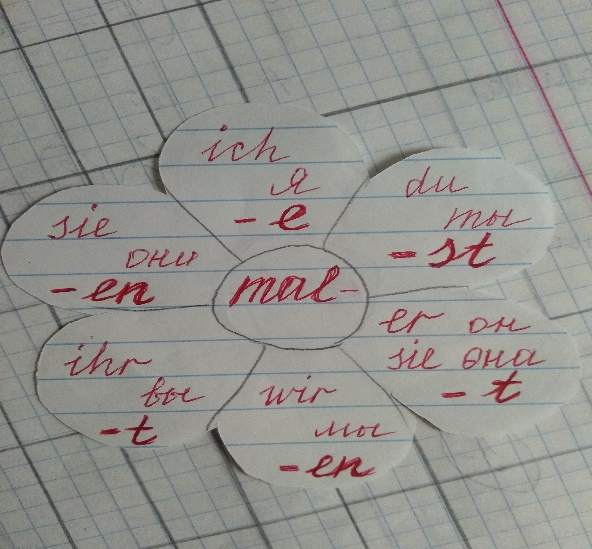 ich
я
-e
du
ты
-st
er он
sie она
-t
wir
мы
-en
ihr
вы
-t
sie
они
-en
mal-